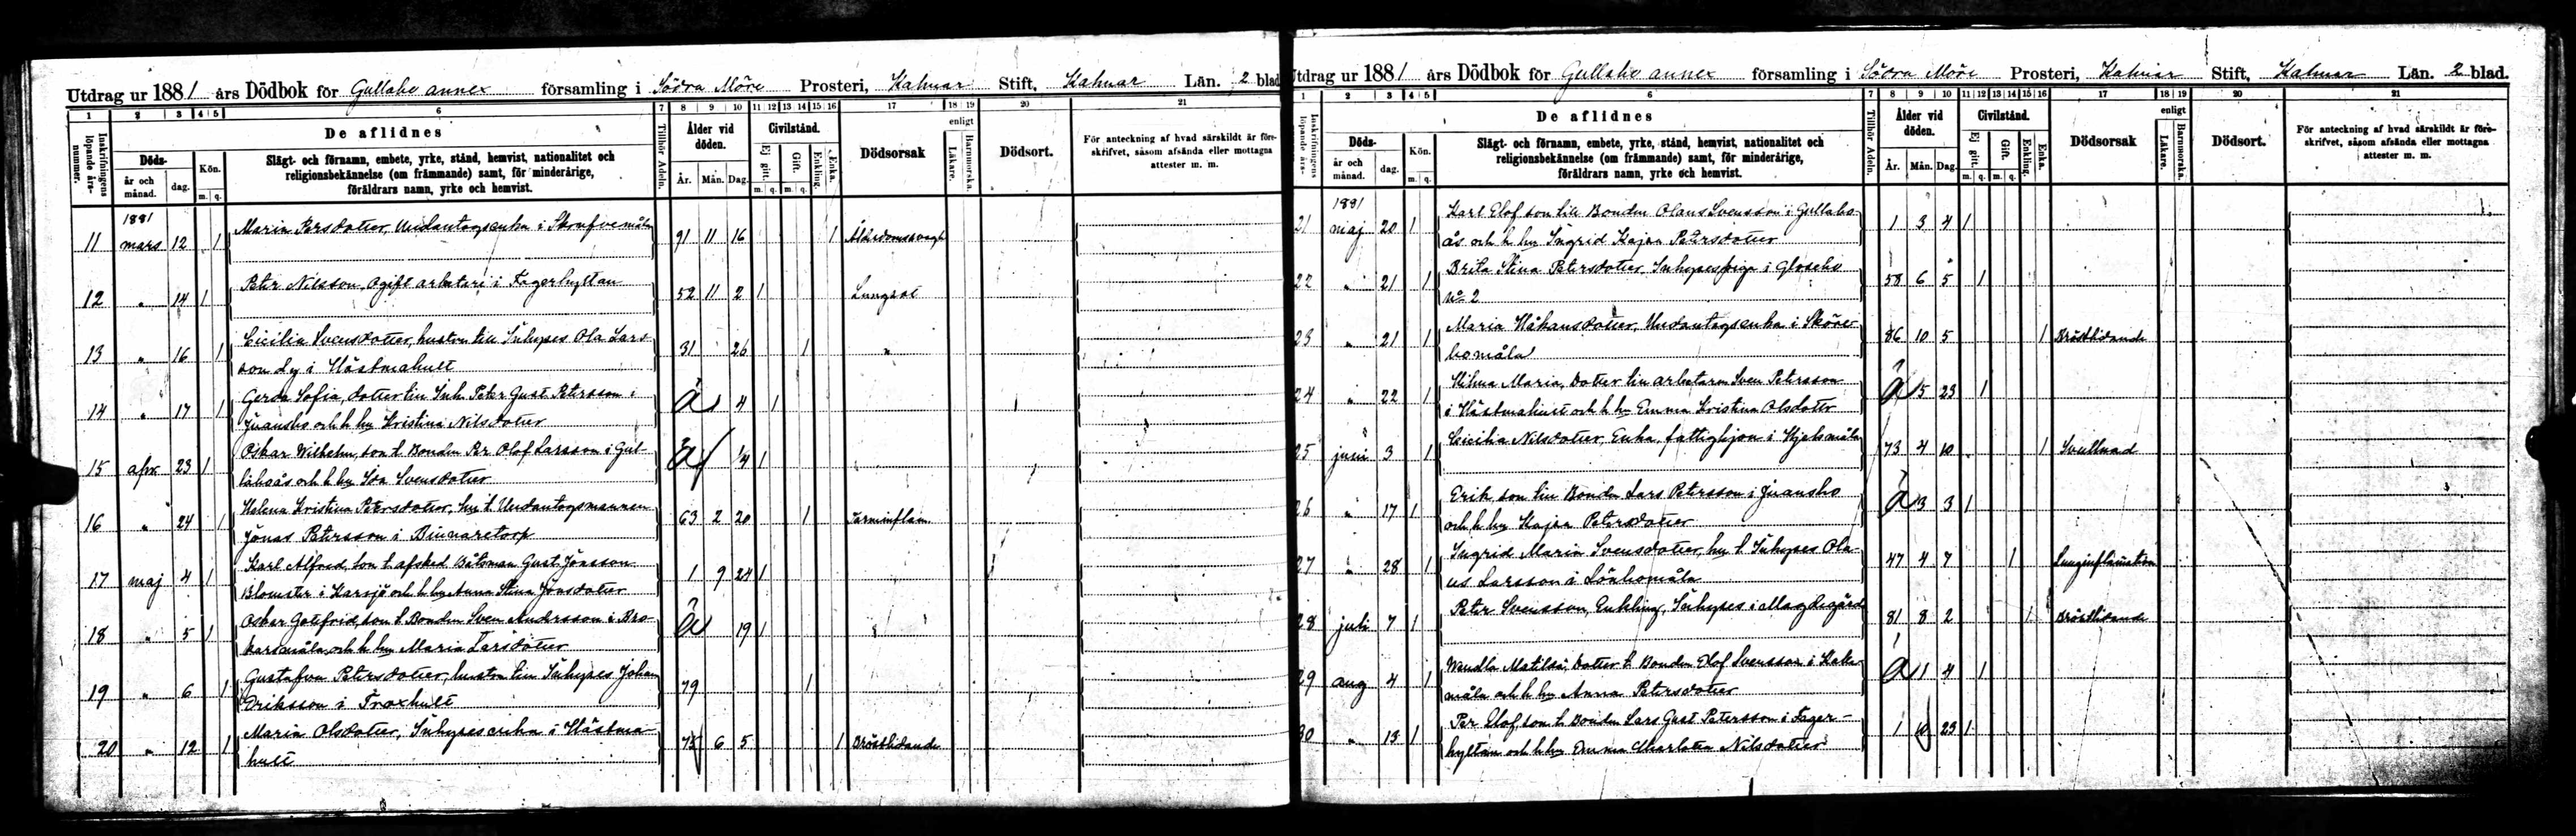 Utdrag ur 1881 års Dödbok för Gullabo annex församling i Södra Möre Prosteri, Kalmar Stift, Kalmar Län. 2 blad
1 2 3 4 5 6 7 8 9 10 11 12 13 14 15 16 17 18 19 20 21
Inskrifningens löpande årsnummer.
Döds-
år och månad.
dag.
Kön.
m. q.
De aflidnes
Slägt- och förnamn, embete, yrke, stånd, hemvist, nationalitet och
religionsbekännelse (om främmande) samt, för minderårige,
föräldrars namn, yrke och hemvist.
Tillhör Adeln.
Ålder vid döden.
År. Mån. Dag.
Civilstånd.
Ej gift. Gift. Enkling. Enka.
m. q. m. q.
Dödsorsak
enligt
Läkare. Barnmorska.
Dödsort.
För anteckning af hvad särskildt är före-
skrifvet, såsom afsända eller mottagna
attester m. m.
1881
11 mars 12 1 Maria Persdotter, Undantagsenka i Skrufvemåla 91 11 16 1 Ålderdomssvaght
12 " 14 1 Peter Nilsson, Ogift arbetare i Fagerhyltan 52 11 2 1 Lungsot
13 " 16 1 Cicilia Svensdotter, hustru till Inhyses Ola Lars-
son Ly i Hästmahult 31 26 1 "
14 " 17 1 Gerda Sofia, dotter till Inh. Peter Gust. Petersson i
Juansbo och h hu Kristina Nilsdotter 4 1
15 apr. 23 1 Oskar Wilhelm, son t. Bonden Per Olof Larsson i Gul-
laboås och h hu Ida Svensdotter 14 1
16 " 24 1 Helena Kristina Petersdotter, hu t. Undantagsmannen
Jonas Petersson i Binnaretorp 63 2 20 1 Tarminflam.
17 maj 4 1 Karl Alfred, son t. afsked. Båtsman Gust. Jönsson
Blomster i Karsjö och h hu Anna Stina Jonsdotter 1 9 24 1
18 " 5 1 Oskar Gotfrid, son t. Bonden Sven Andersson i Bro-
karemåla och h hu Maria Larsdotter 19 1
19 " 6 1 Gustafva Petersdotter, hustru till Inhyses Johan
Eriksson i Froxhult 79 1
20 " 12 1 Maria Olsdotter, Inhysesenka i Hästma-
hult 75 6 5 1 Bröstlidande
Utdrag ur 1881 års Dödbok för Gullabo annex församling i Södra Möre Prosteri, Kalmar Stift, Kalmar Län. 2 blad.
1 2 3 4 5 6 7 8 9 10 11 12 13 14 15 16 17 18 19 20 21
Inskrifningens löpande års-
Döds-
år och månad.
dag.
Kön.
m. q.
De aflidnes
Slägt- och förnamn, embete, yrke, stånd, hemvist, nationalitet och
religionsbekännelse (om främmande) samt, för minderårige,
föräldrars namn, yrke och hemvist.
Tillhör Adeln.
Ålder vid döden.
År. Mån. Dag.
Civilstånd.
Ej gift. Gift. Enkling. Enka.
m. q. m. q.
Dödsorsak
enligt
Läkare. Barnmorska.
Dödsort.
För anteckning af hvad särskildt är före-
skrifvet, såsom afsända eller mottagna
attester m. m.
1881
21 maj 20 1 Karl Elof son till Bonden Olaus Svensson i Gullabo-
ås och h hu Ingrid Kajsa Petersdotter 1 3 4 1
22 " 21 1 Brita Stina Petersdotter, Inhysespiga i Glosebo
No 2 58 6 5 1
23 " 21 1 Maria Håkansdotter, Undantagsenka i Sköre-
bomåla 86 10 5 1 Bröstlidande
24 " 22 1 Hilma Maria, Dotter till arbetaren Sven Petersson
i Hästmahult och h hu Emma Kristina Olsdotter 5 23 1
25 juni 3 1 Cicilia Nilsdotter, Enka, fattighjon i Hjelsmåla 73 4 10 1 Svullnad
26 " 17 1 Erik son till Bonden Lars Petersson i Juansbo
och h hu Kajsa Petersdotter 3 3 1
27 " 28 1 Ingrid Maria Svensdotter, hu t. Inhyses Ola-
us Larsson i Lönbomåla 47 4 7 1 Lunginflammation
28 juli 7 1 Peter Svensson, Enkling, Inhyses i Magdegärde 81 8 2 1 Bröstlidande
29 aug 4 1 Wendla Matilda, Dotter t. Bonden Elof Svensson i Kaka-
måla och h hu Anna Petersdotter 1 4 1
30 " 13 1 Per Elof, son t. Bonden Lars Gust Petersson i Fager-
hyltan och h hu Emma Charlotta Nilsdotter 1 10 23 1